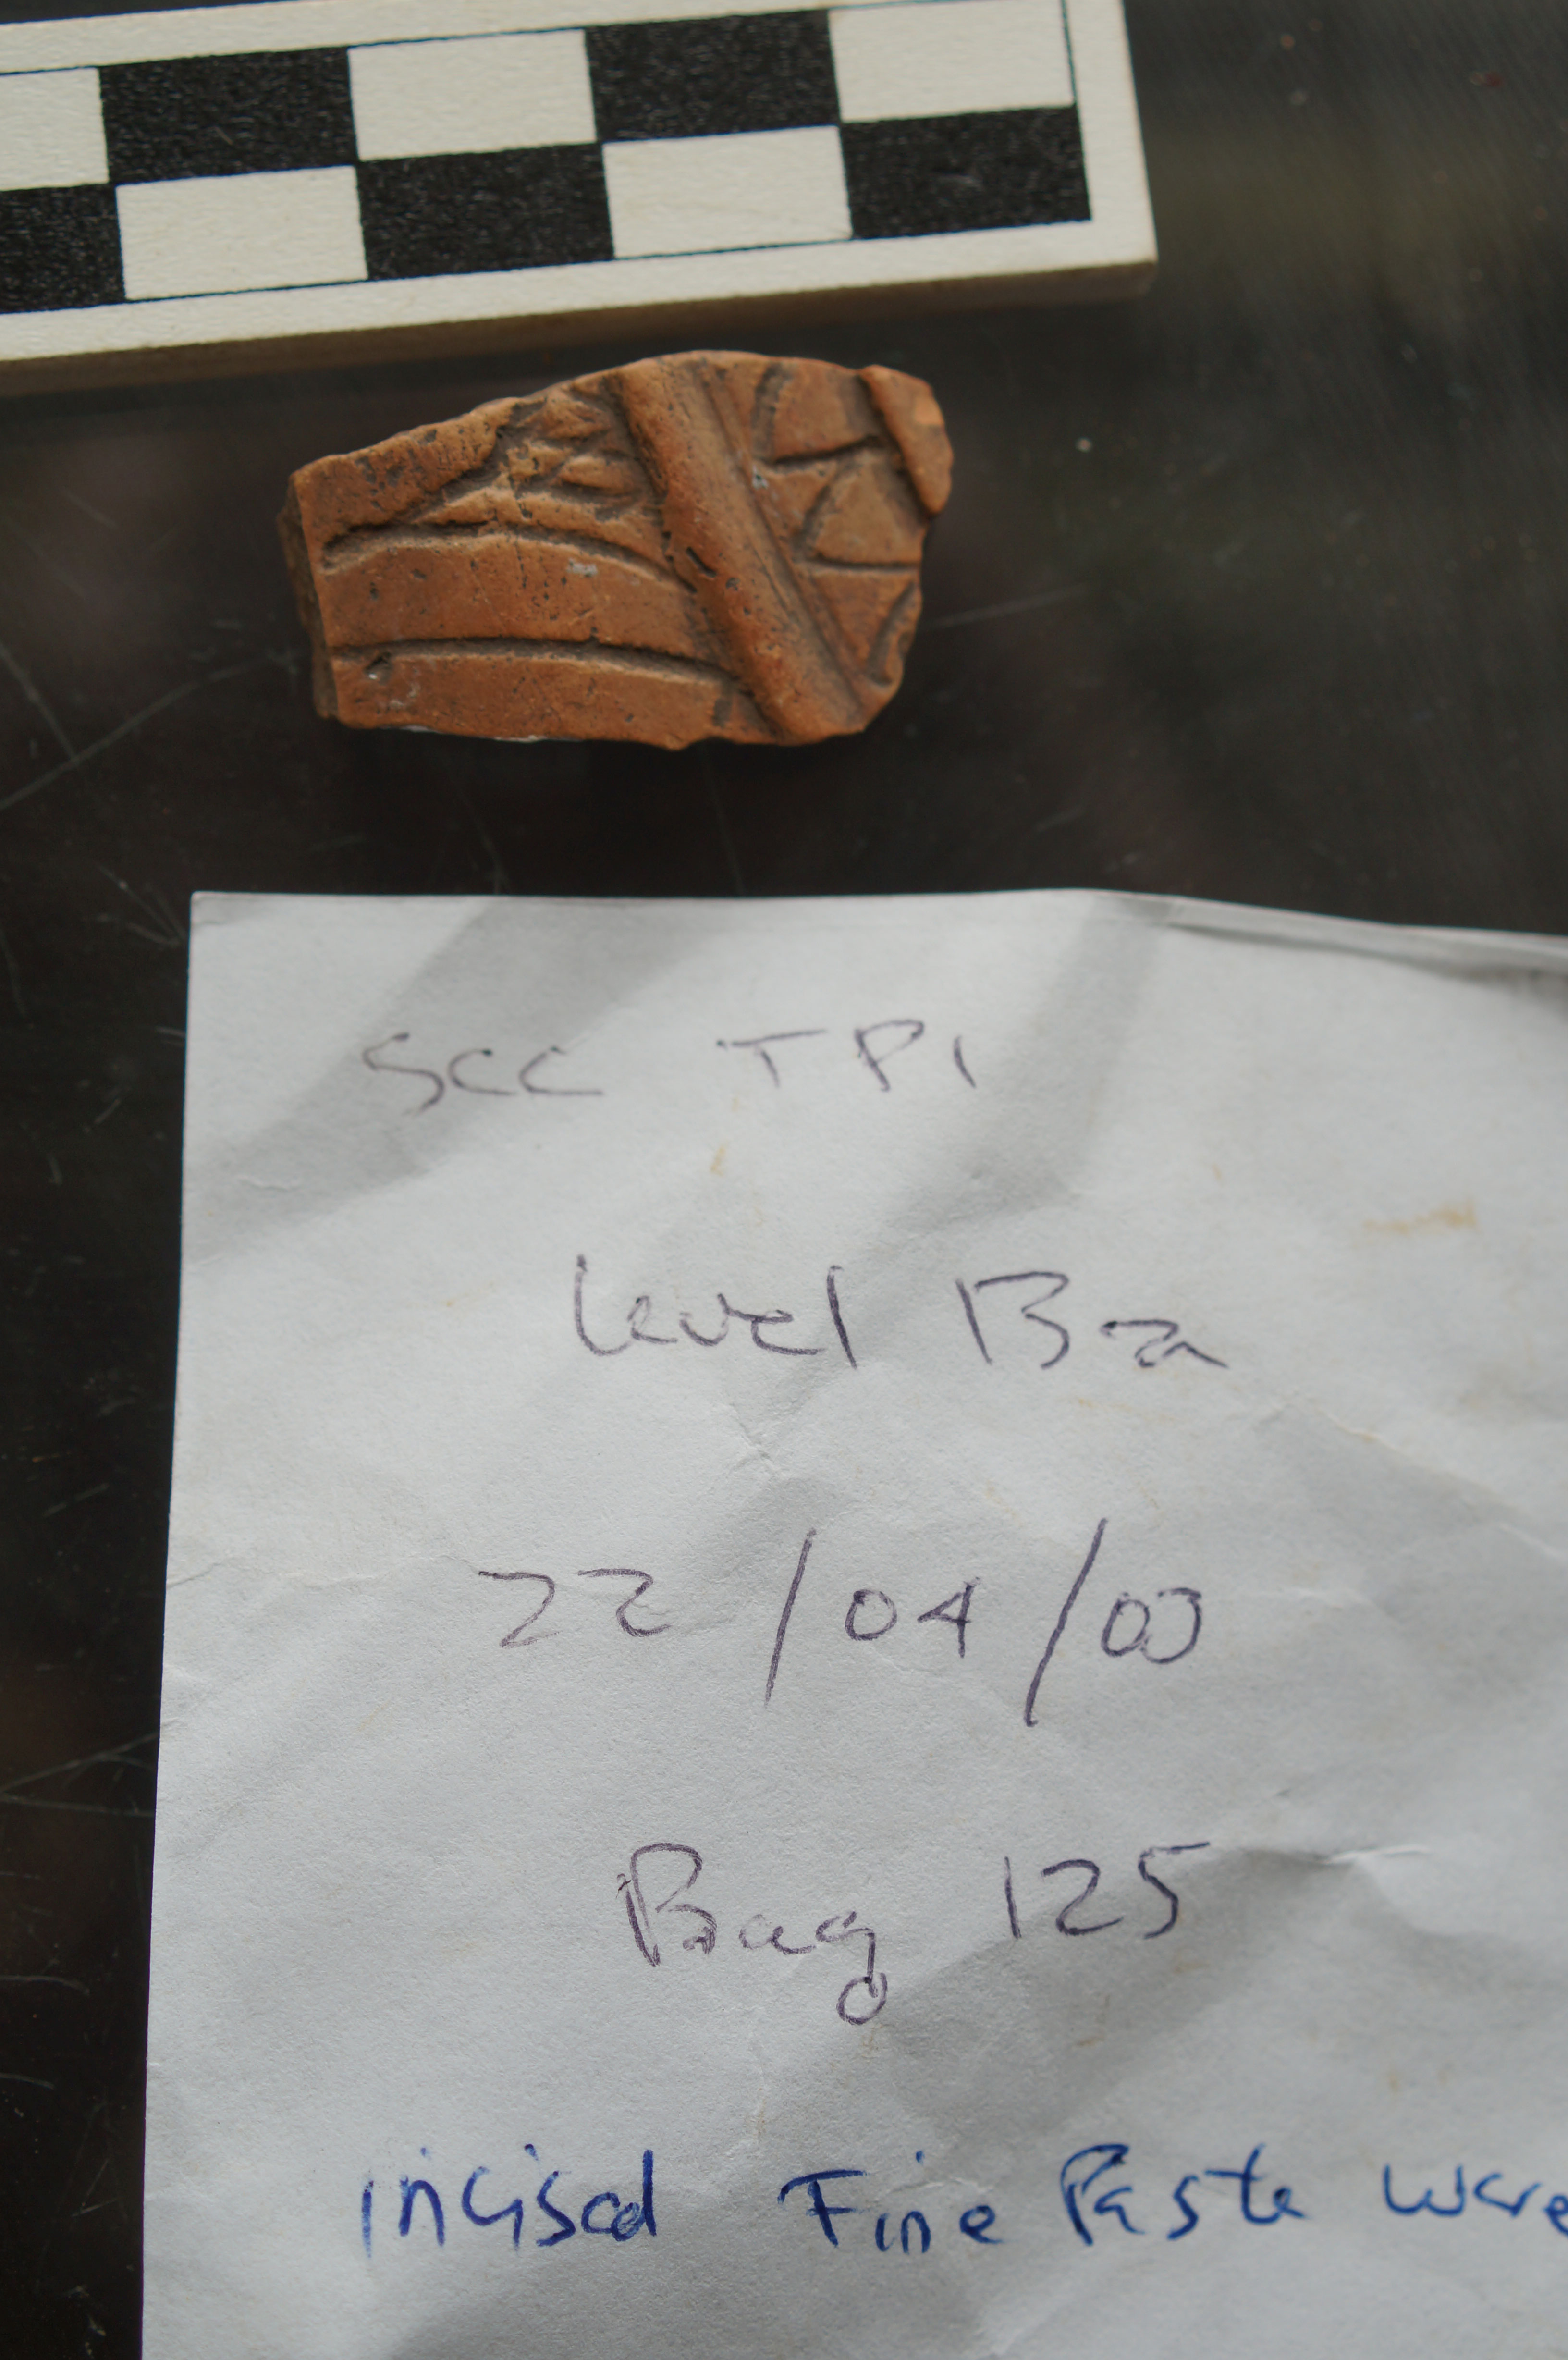 SCC TP1
Level Ba
22/04/03
Bag 125
Incised Fine Paste Ware